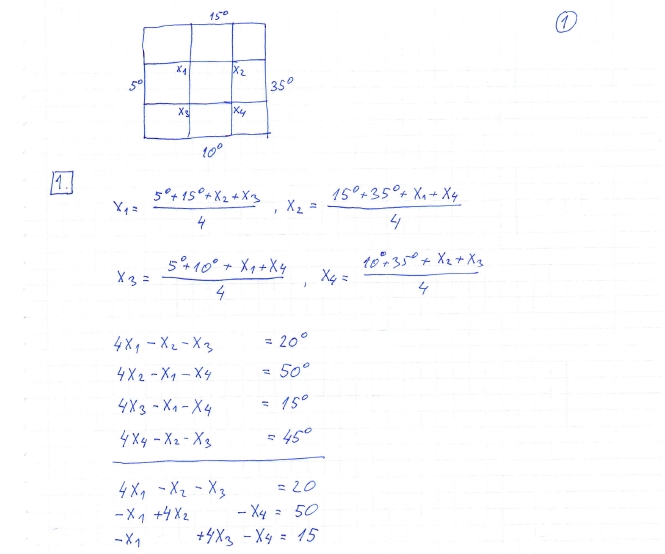 15°
1
x1 x2
5° 35°
x3 x4
10°
1.
x1 = (5°+15°+x2+x3)/4 , x2 = (15°+35°+x1+x4)/4
x3 = (5°+10°+x1+x4)/4 , x4 = (10°+35°+x2+x3)/4
4x1 - x2 - x3 = 20°
4x2 - x1 - x4 = 50°
4x3 - x1 - x4 = 15°
4x4 - x2 - x3 = 45°
4x1 - x2 - x3 = 20
-x1 +4x2 -x4 = 50
-x1 +4x3 -x4 = 15